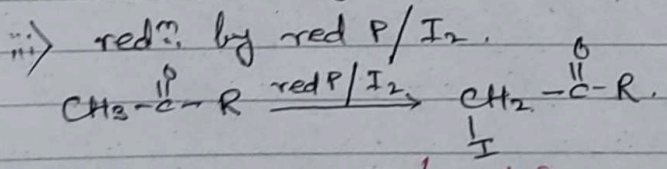 iii) redⁿ. by red P/I₂.
O
CH₃-C-R red P/I₂ CH₂-C-R.
O
I